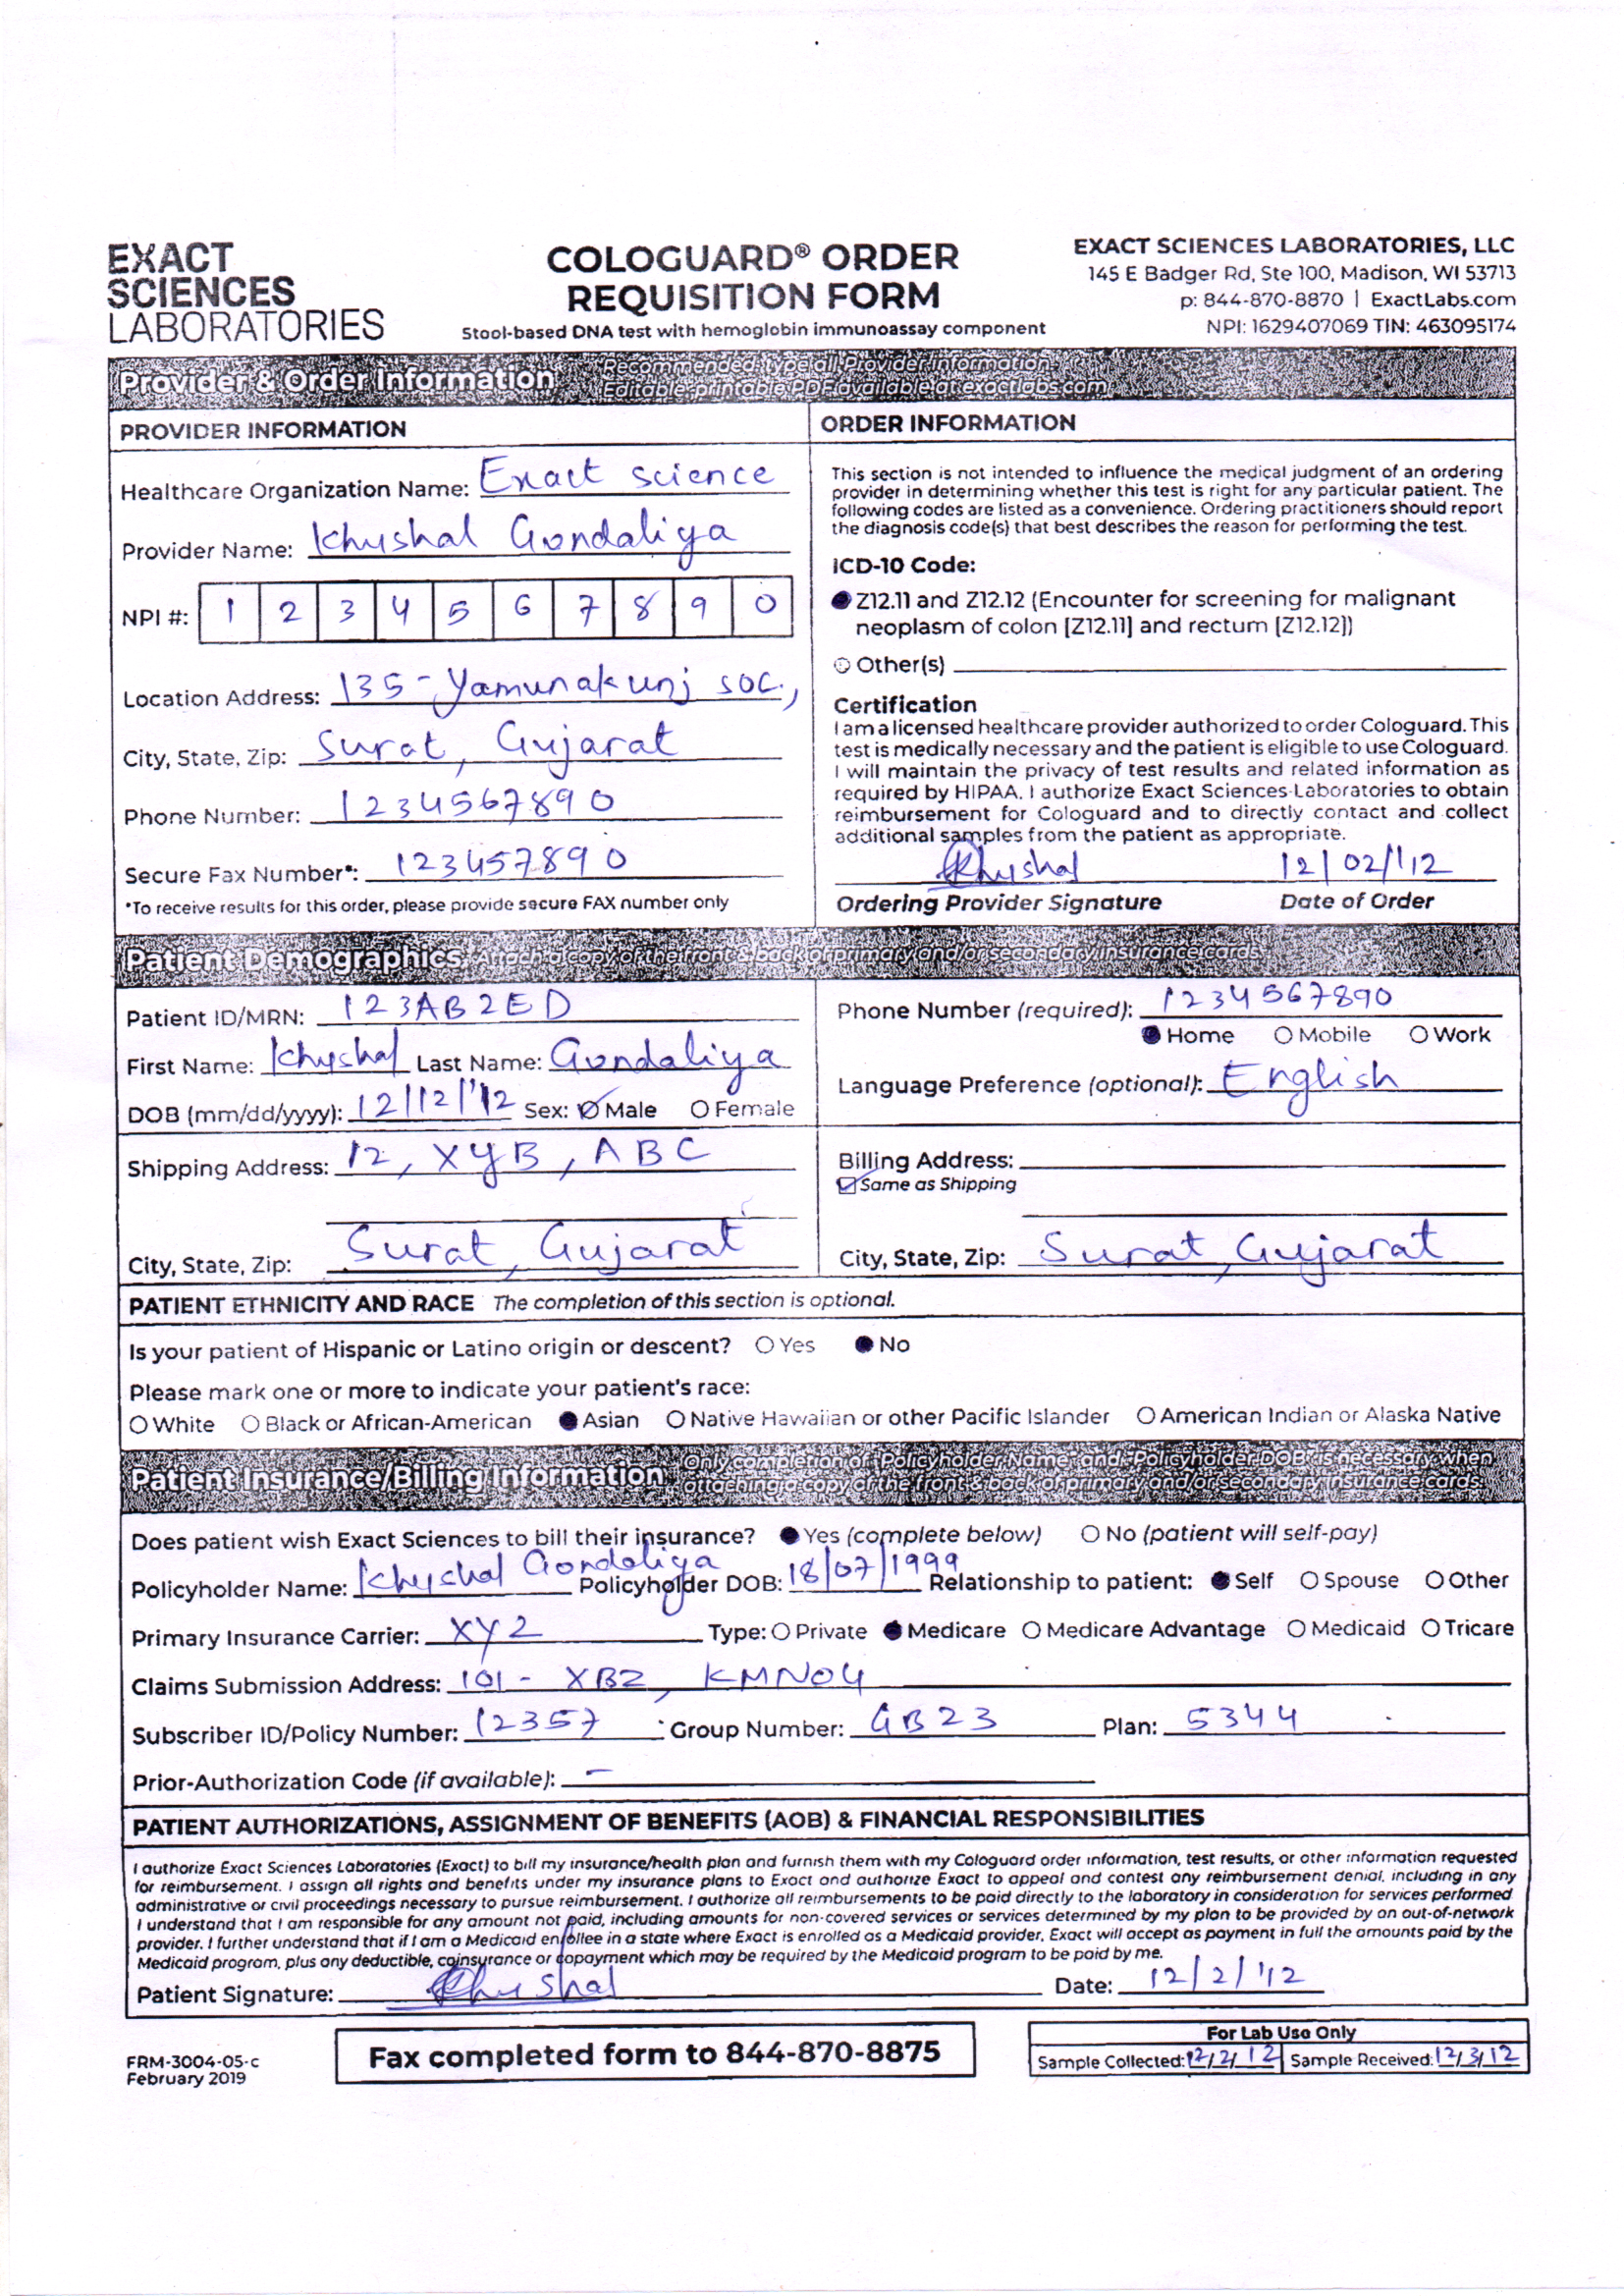 EXACT
SCIENCES
LABORATORIES
COLOGUARD® ORDER
REQUISITION FORM
Stool-based DNA test with hemoglobin immunoassay component
EXACT SCIENCES LABORATORIES, LLC
145 E Badger Rd, Ste 100, Madison, WI 53713
p: 844-870-8870 | ExactLabs.com
NPI: 1629407069 TIN: 463095174
Provider & Order Information
Recommended: type all Provider Information.
Editable, printable PDF available at exactlabs.com
PROVIDER INFORMATION
Healthcare Organization Name: Exact science
Provider Name: Khushal Gondaliya
NPI #: 1 2 3 4 5 6 7 8 9 0
Location Address: 135-Yamunakunj soc.,
City, State, Zip: Surat, Gujarat
Phone Number: 1234567890
Secure Fax Number*: 123457890
*To receive results for this order, please provide secure FAX number only
ORDER INFORMATION
This section is not intended to influence the medical judgment of an ordering
provider in determining whether this test is right for any particular patient. The
following codes are listed as a convenience. Ordering practitioners should report
the diagnosis code(s) that best describes the reason for performing the test.
ICD-10 Code:
Z12.11 and Z12.12 (Encounter for screening for malignant
neoplasm of colon [Z12.11] and rectum [Z12.12])
Other(s)
Certification
I am a licensed healthcare provider authorized to order Cologuard. This
test is medically necessary and the patient is eligible to use Cologuard.
I will maintain the privacy of test results and related information as
required by HIPAA. I authorize Exact Sciences Laboratories to obtain
reimbursement for Cologuard and to directly contact and collect
additional samples from the patient as appropriate.
Khushal 12/02/'12
Ordering Provider Signature Date of Order
Patient Demographics Attach a copy of the front & back of primary and/or secondary insurance cards.
Patient ID/MRN: 123AB2ED
First Name: Khushal Last Name: Gondaliya
DOB (mm/dd/yyyy): 12/12/'12 Sex: Male Female
Phone Number (required): 1234567890
Home Mobile Work
Language Preference (optional): English
Shipping Address: 12, XYB, ABC
City, State, Zip: Surat, Gujarat
Billing Address:
Same as Shipping
City, State, Zip: Surat, Gujarat
PATIENT ETHNICITY AND RACE The completion of this section is optional.
Is your patient of Hispanic or Latino origin or descent? Yes No
Please mark one or more to indicate your patient's race:
White Black or African-American Asian Native Hawaiian or other Pacific Islander American Indian or Alaska Native
Patient Insurance/Billing Information
Only completion of Policyholder Name and Policyholder DOB is necessary when
attaching a copy of the front & back of primary and/or secondary insurance cards.
Does patient wish Exact Sciences to bill their insurance? Yes (complete below) No (patient will self-pay)
Policyholder Name: Khushal Gondaliya Policyholder DOB: 18/07/1999 Relationship to patient: Self Spouse Other
Primary Insurance Carrier: XYZ Type: Private Medicare Medicare Advantage Medicaid Tricare
Claims Submission Address: 101- XBZ, KMNO4
Subscriber ID/Policy Number: 12357 Group Number: GB23 Plan: 5344
Prior-Authorization Code (if available): -
PATIENT AUTHORIZATIONS, ASSIGNMENT OF BENEFITS (AOB) & FINANCIAL RESPONSIBILITIES
I authorize Exact Sciences Laboratories (Exact) to bill my insurance/health plan and furnish them with my Cologuard order information, test results, or other information requested
for reimbursement. I assign all rights and benefits under my insurance plans to Exact and authorize Exact to appeal and contest any reimbursement denial, including in any
administrative or civil proceedings necessary to pursue reimbursement. I authorize all reimbursements to be paid directly to the laboratory in consideration for services performed
I understand that I am responsible for any amount not paid, including amounts for non-covered services or services determined by my plan to be provided by an out-of-network
provider. I further understand that if I am a Medicaid enrollee in a state where Exact is enrolled as a Medicaid provider, Exact will accept as payment in full the amounts paid by the
Medicaid program, plus any deductible, coinsurance or copayment which may be required by the Medicaid program to be paid by me.
Patient Signature: Khushal Date: 12/2/'12
FRM-3004-05-c
February 2019
Fax completed form to 844-870-8875
For Lab Use Only
Sample Collected: 12/2/12 Sample Received: 12/3/12